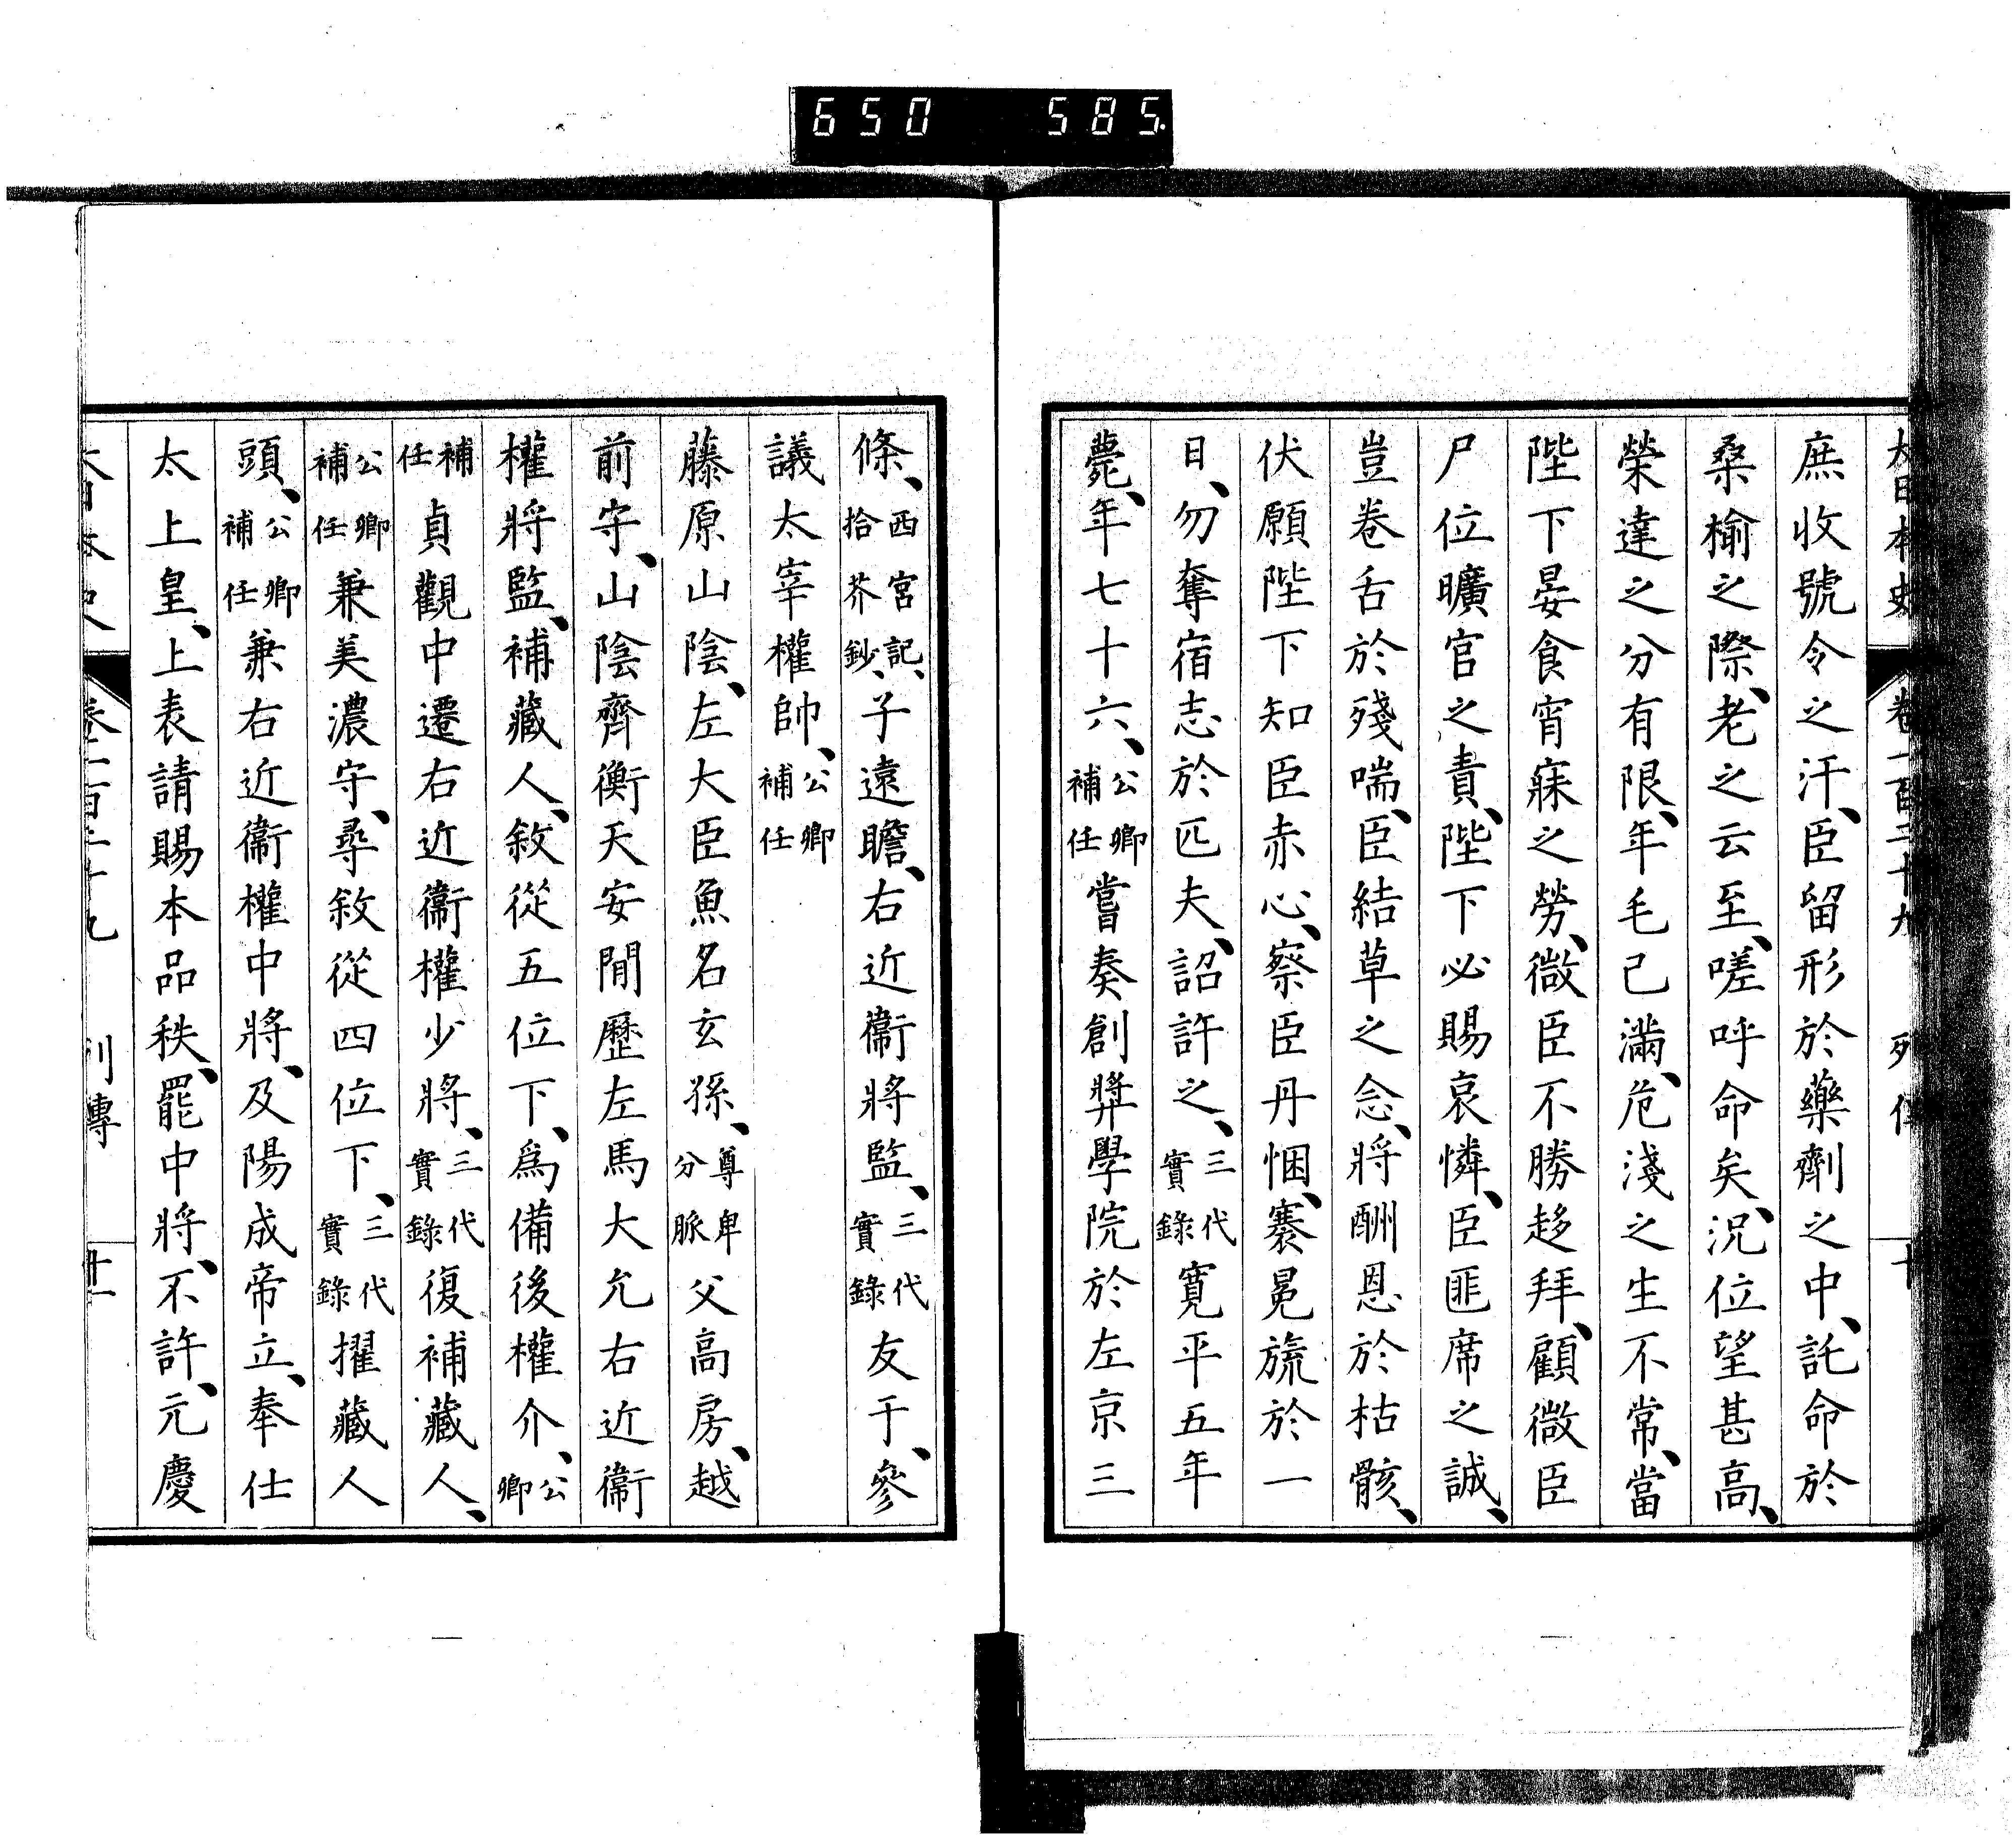 650 585.
大日本史 卷一百二十九 列傳 十
庶收號令之汗、臣留形於藥劑之中、託命於
桑榆之際、老之云至、嗟呼命矣、況位望甚高、
榮達之分有限、年毛已滿、危淺之生不常、當
陛下晏食宵寐之勞、微臣不勝趍拜、顧微臣
尸位曠官之責、陛下必賜哀憐、臣匪席之誠、
豈卷舌於殘喘、臣結草之念、將酬恩於枯骸、
伏願陛下知臣赤心、察臣丹悃、褰冕旒於一
日、勿奪宿志於匹夫、詔許之、三代實錄寬平五年
薨、年七十六、公卿補任嘗奏創奬學院於左京三
條、西宮記、拾芥鈔、子遠瞻、右近衞將監、三代實錄友于、參
議太宰權帥、公卿補任
藤原山陰、左大臣魚名玄孫、尊卑分脈父高房、越
前守、山陰齊衡天安閒歷左馬大允右近衞
權將監、補藏人、敘從五位下、爲備後權介、公卿
補任貞觀中遷右近衞權少將、三代實錄復補藏人、
公卿補任兼美濃守、尋敘從四位下、三代實錄擢藏人
頭、公卿補任兼右近衞權中將、及陽成帝立、奉仕
太上皇、上表請賜本品秩、罷中將、不許、元慶
大日本史 卷一百二十九 列傳 十一